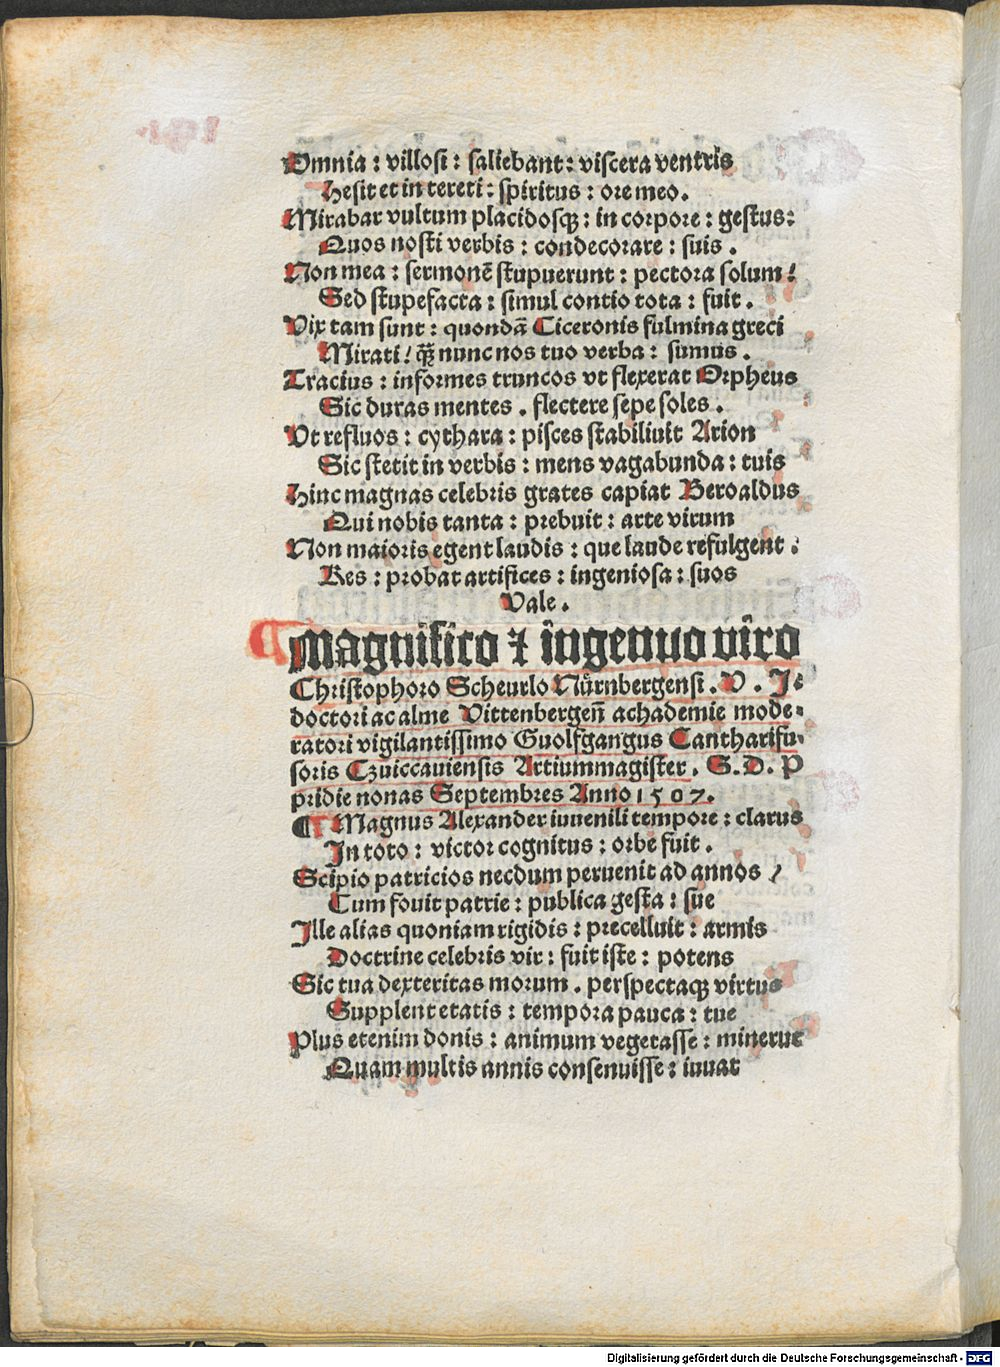 Omnia : villosi : saliebant : viscera ventris
Hesit et in tereti : spiritus : ore meo.
Mirabar vultum placidosqꝫ : in corpore : gestus :
Quos nosti verbis : condecorare : suis .
Non mea : sermonē stupuerunt : pectora solum /
Sed stupefacta : simul contio tota : fuit .
Vix tam sunt : quondā Ciceronis fulmina greci
Mirati / qꝫ̄ nunc nos tuo verba : sumus .
Tracius : informes truncos vt flexerat Orpheus
Sic duras mentes . flectere sepe soles .
Vt refluos : cythara : pisces stabiliuit Arion
Sic stetit in verbis : mens vagabunda : tuis
Hinc magnas celebris grates capiat Beroaldus
Qui nobis tanta : prebuit : arte virum
Non maioris egent laudis : que laude refulgent :
Res : probat artifices : ingeniosa : suos
Vale .
Magnifico ⁊ ingenuo viro
Christophoro Scheurlo Nůrnbergensi . V . J :
doctori ac alme Vittenbergeñ achademie mode :
ratori vigilantissimo Guolfgangus Cantharifu :
soris Czuiccauiensis Artiummagister . S . D . P
pridie nonas Septembres Anno 1507 .
¶ Magnus Alexander iuuenili tempore : clarus
In toto : victor cognitus : orbe fuit .
Scipio patricios necdum peruenit ad annos /
Cum fouit patrie : publica gesta : sue
Ille alias quoniam rigidis : precelluit : armis
Doctrine celebris vir : fuit iste : potens
Sic tua dexteritas morum . perspectaqꝫ virtus
Supplent etatis : tempora pauca : tue
Plus etenim donis : animum vegetasse : minerue
Quam multis annis consenuisse : iuuat
Digitalisierung gefördert durch die Deutsche Forschungsgemeinschaft - DFG